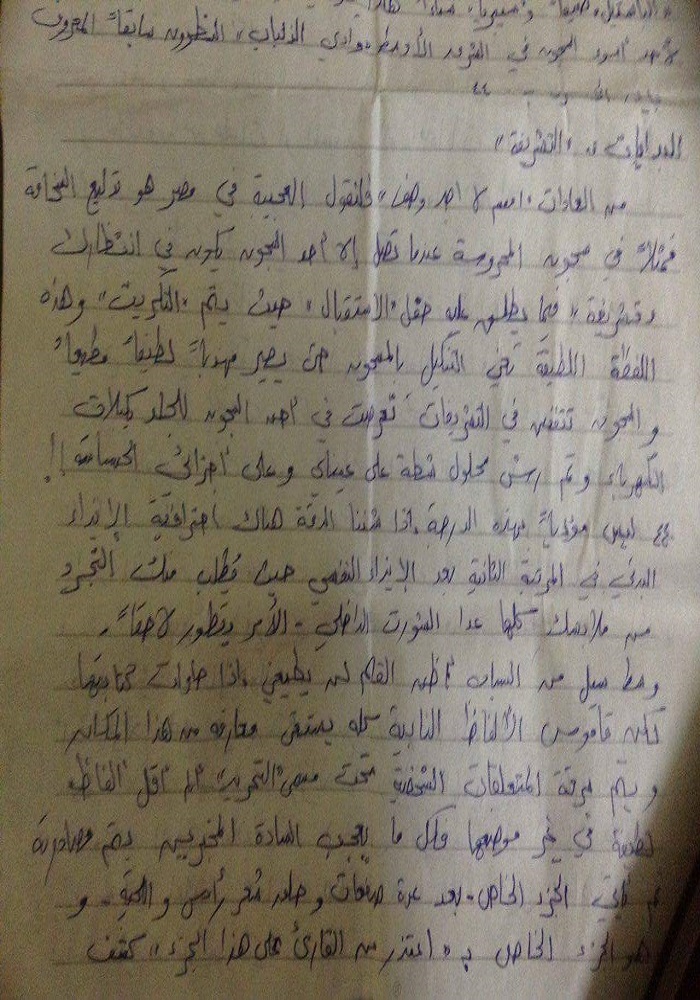 لأحد أسود السجون في الشرق الأوسط "وادي الذئاب" المنظرون سابقاً المعروف
البدايات .. "التشريفة"
من العادات "اسم لا أجد وصف" فلنقول العجيبة في مصر هو تدليع السخافة
فمثلاً في سجون المحروسة عندما تصل إلى أحد السجون يكون في انتظارك
"تشريفة" فيما يطلق عليه حفل "الاستقبال" حيث يتم "التكريت" وهذه
اللفظة اللطيفة تعني التنكيل بالمسجون حتى يصير مهذباً لطيفاً مطيعاً
والسجون تتفنن في التشريفات تعرضت في أحد السجون للجلد بكبلات
الكهرباء وتم رش محلول شطة على عيناي وعلى أجزائي الحساسة !!
ليس مؤذياً بهذه الدرجة إذا شئنا الدقة هناك احترافية الإيذاء
البدني في المرتبة الثانية بعد الإيذاء النفسي حيث يُطلب منك التجرد
من ملابسك كلها عدا الشورت الداخلي - الأمر يتطور لاحقاً -
وسط سيل من السباب أظن القلم لن يطيعني إذا حاولت كتابتها
لكن قاموس الألفاظ النابية كله يستقى معارفه من هذا المكان
ويتم سرقة المتعلقات الشخصية تحت مسمى "التجريد" ألم أقل ألفاظ
لطيفة في غير موضعها فكل ما يعجب السادة المخبرين يتم مصادرته
ثم يأتي الجزء الخاص - بعد عدة صفعات وحلق شعر رأسي واللحية - و
هو الجزء الخاص بـ "أعتذر من القارئ على هذا الجزء" كشف